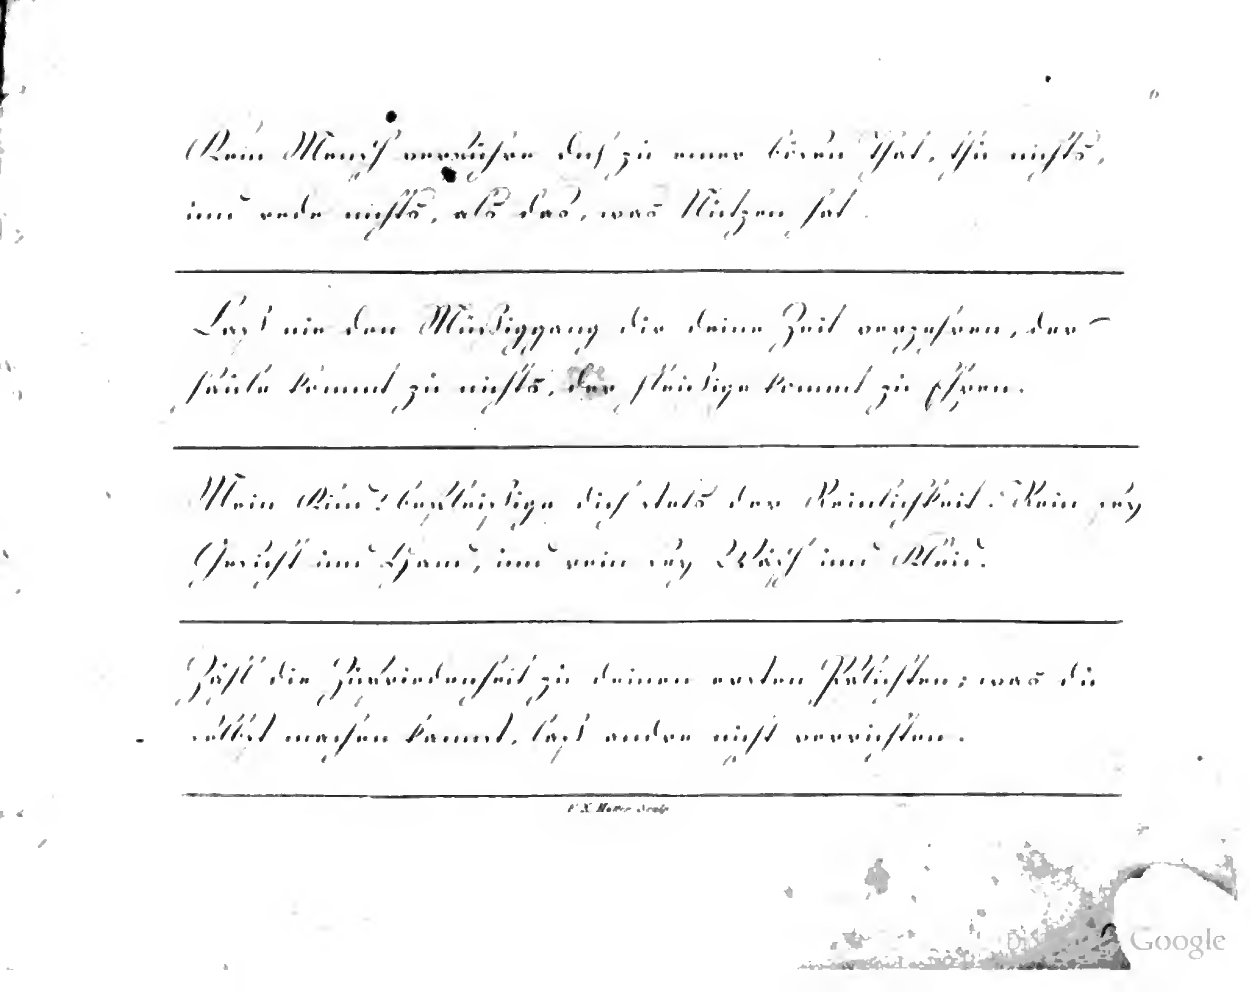 6
Kein Mensch verführe dich zu einer bösen That, thu nichts,
und rede nichts, als das, was Nutzen hat.
Laß nie den Müßiggang die deine Zeit verzehren, der
faule kömmt zu nichts, der fleißige kommt zu Ehren.
Mein Kind! befleißige dich stets der Reinlichkeit: Rein sey
Gesicht und Hand, und rein sey Wäsch und Kleid.
Zähl die Zufriedenheit zu deinen ersten Pflichten; was du
selbst machen kannst, laß andre nicht verrichten.
Google